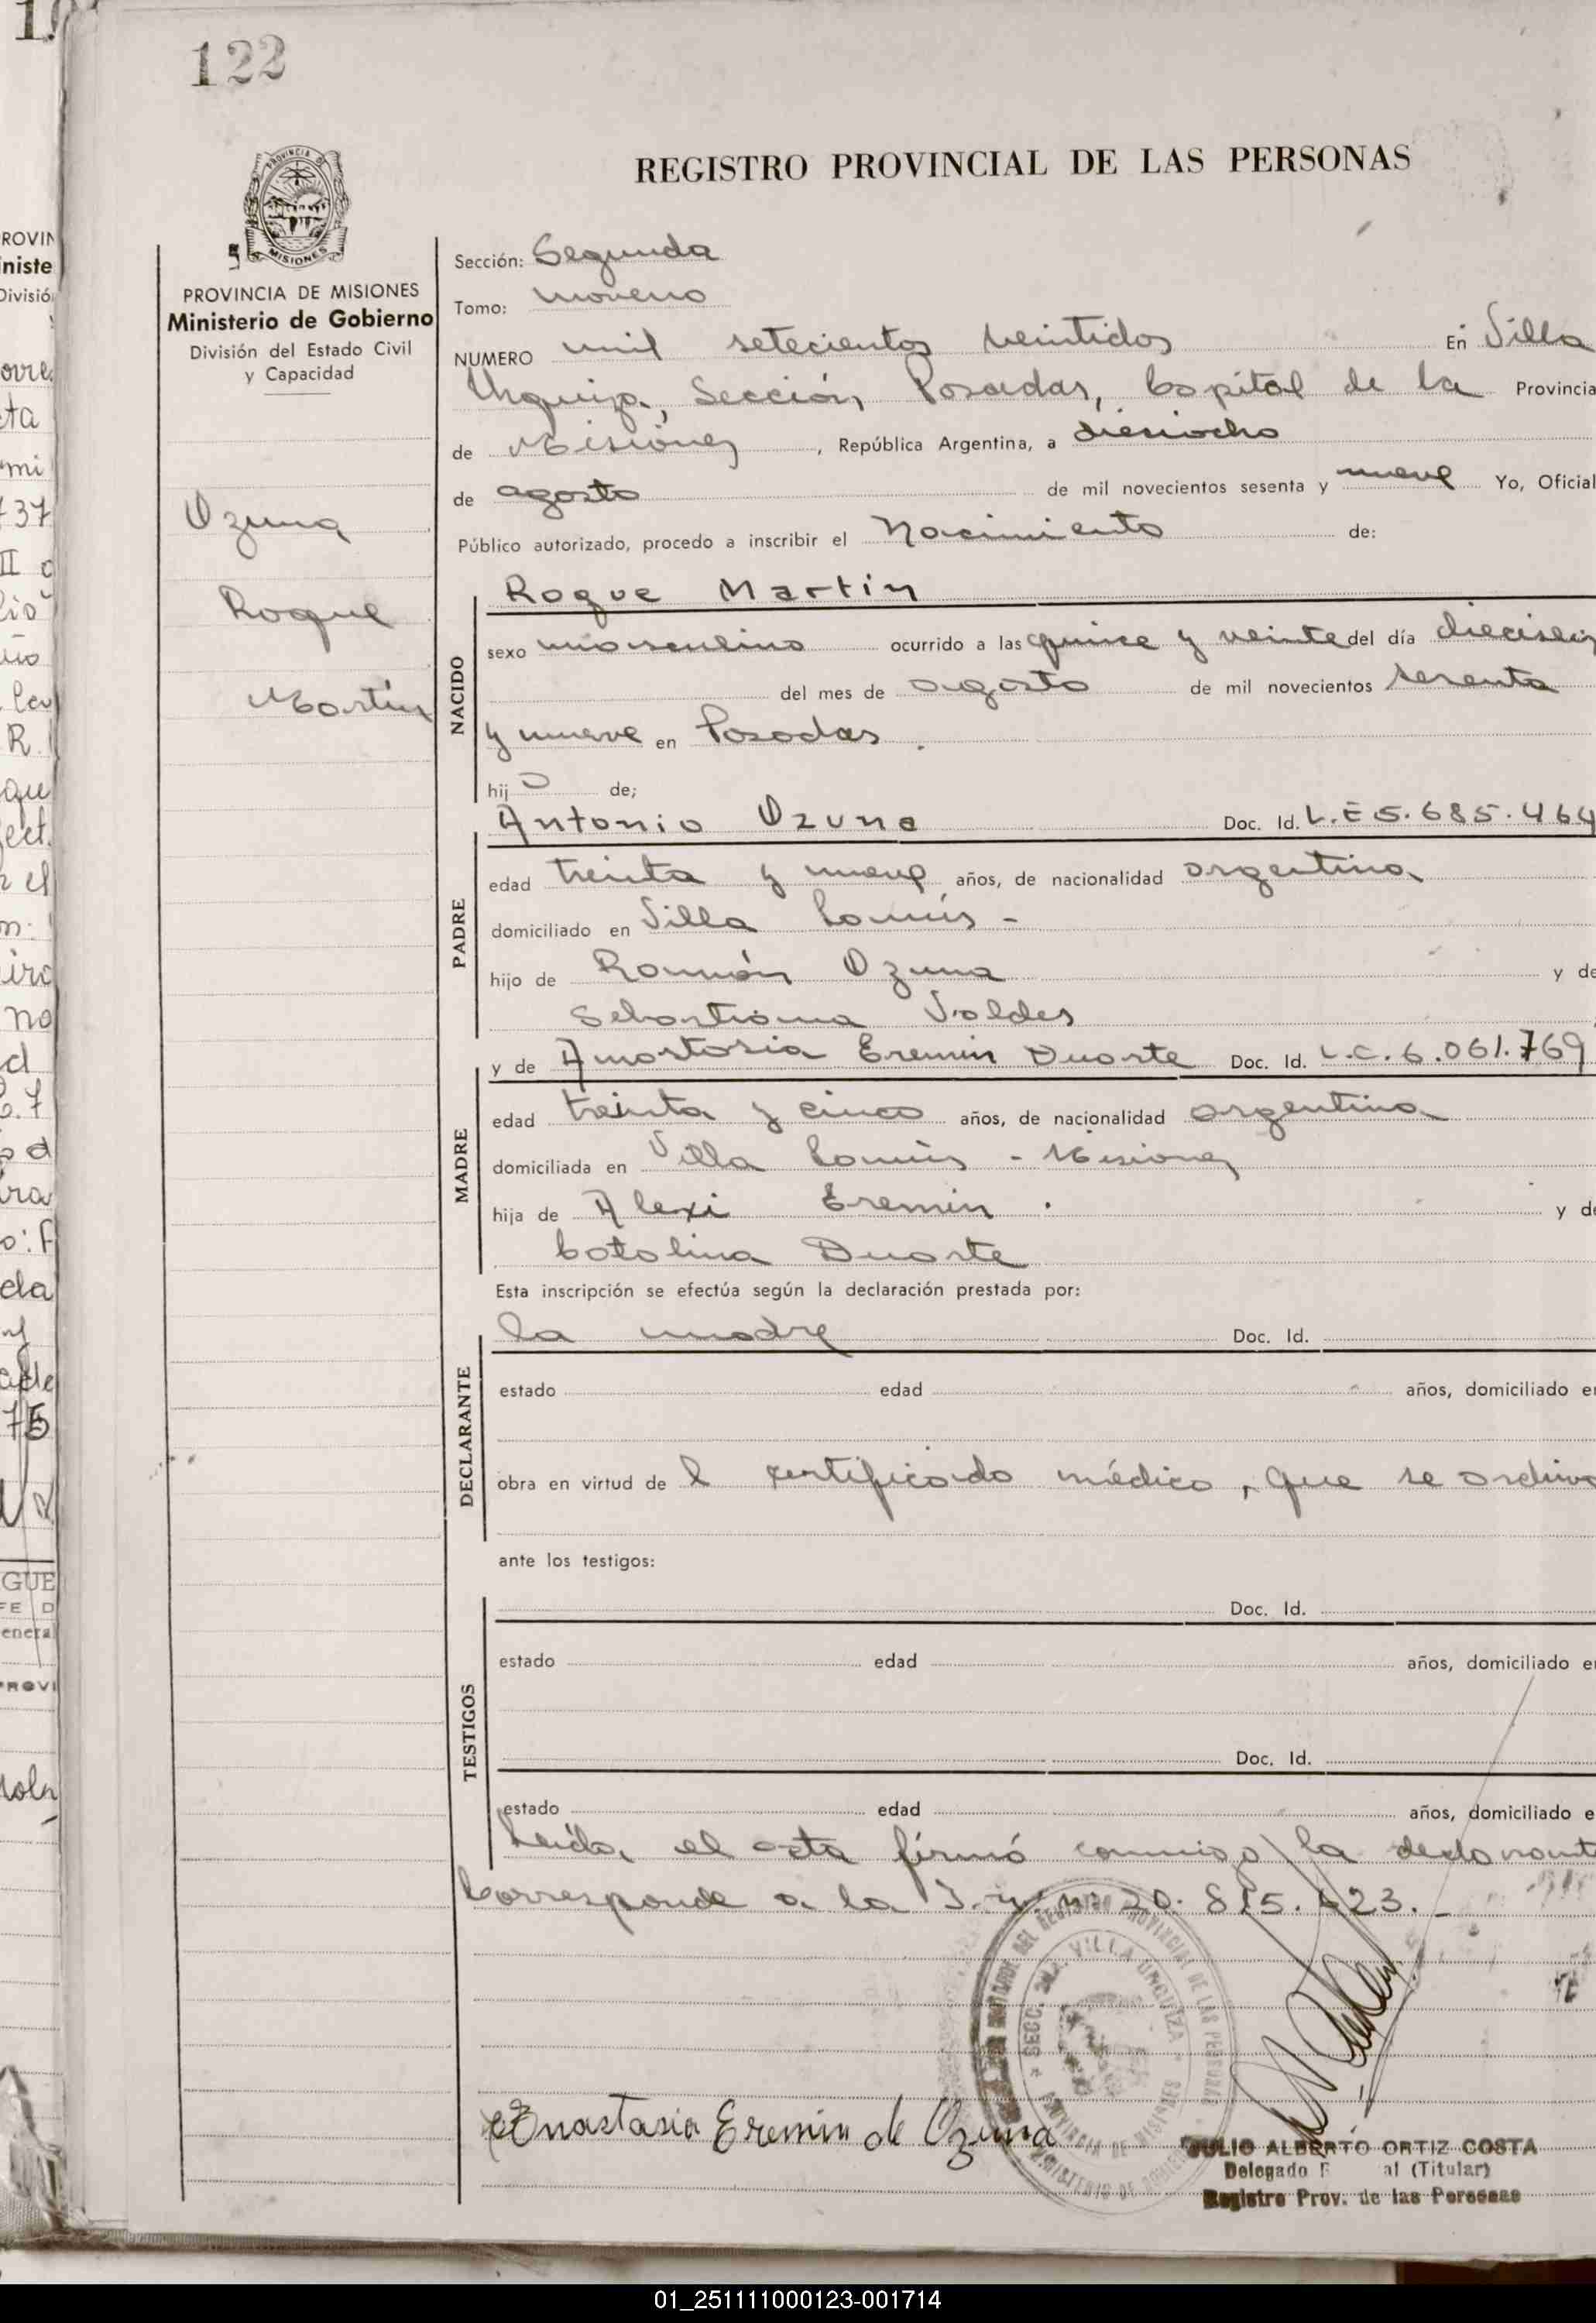 122
REGISTRO PROVINCIAL DE LAS PERSONAS
PROVINCIA DE MISIONES
Ministerio de Gobierno
División del Estado Civil
y Capacidad
Ozuna
Roque
Martín
Sección: Segunda
Tomo: noveno
NUMERO mil setecientos veintidos En Villa
Urquiza, Sección Posadas, Capital de la Provincia
de Misiones, República Argentina, a dieciocho
de agosto de mil novecientos sesenta y nueve Yo, Oficial
Público autorizado, procedo a inscribir el Nacimiento de:
NACIDO
Roque Martín
sexo masculino ocurrido a las quince y veinte del día dieciseis
del mes de agosto de mil novecientos sesenta
y nueve en Posadas.
hijo de;
PADRE
Antonio Ozuna Doc. Id. L.E 5.685.464
edad treinta y nueve años, de nacionalidad argentina
domiciliado en Villa Lanús -
hijo de Ramón Ozuna y de
Sebastiana Valdes
MADRE
y de Anastasia Eremin Duarte Doc. Id. L.C. 6.061.769
edad treinta y cinco años, de nacionalidad argentina
domiciliada en Villa Lanús - Misiones
hija de Alexi Eremin. y de
Catalina Duarte
Esta inscripción se efectúa según la declaración prestada por:
DECLARANTE
la madre Doc. Id.
estado edad años, domiciliado en
obra en virtud de l certificado médico, que se archiva
ante los testigos:
TESTIGOS
Doc. Id.
estado edad años, domiciliado en
Doc. Id.
estado edad años, domiciliado e
Leída el acta firmó conmigo la declarante
Corresponde a la 20.815.623.-
SECC. 2da. VILLA URQUIZA
PROVINCIA DE MISIONES
Anastasia Eremin de Ozuna
JULIO ALBERTO ORTIZ COSTA
Delegado al (Titular)
Registro Prov. de las Personas
01_251111000123-001714